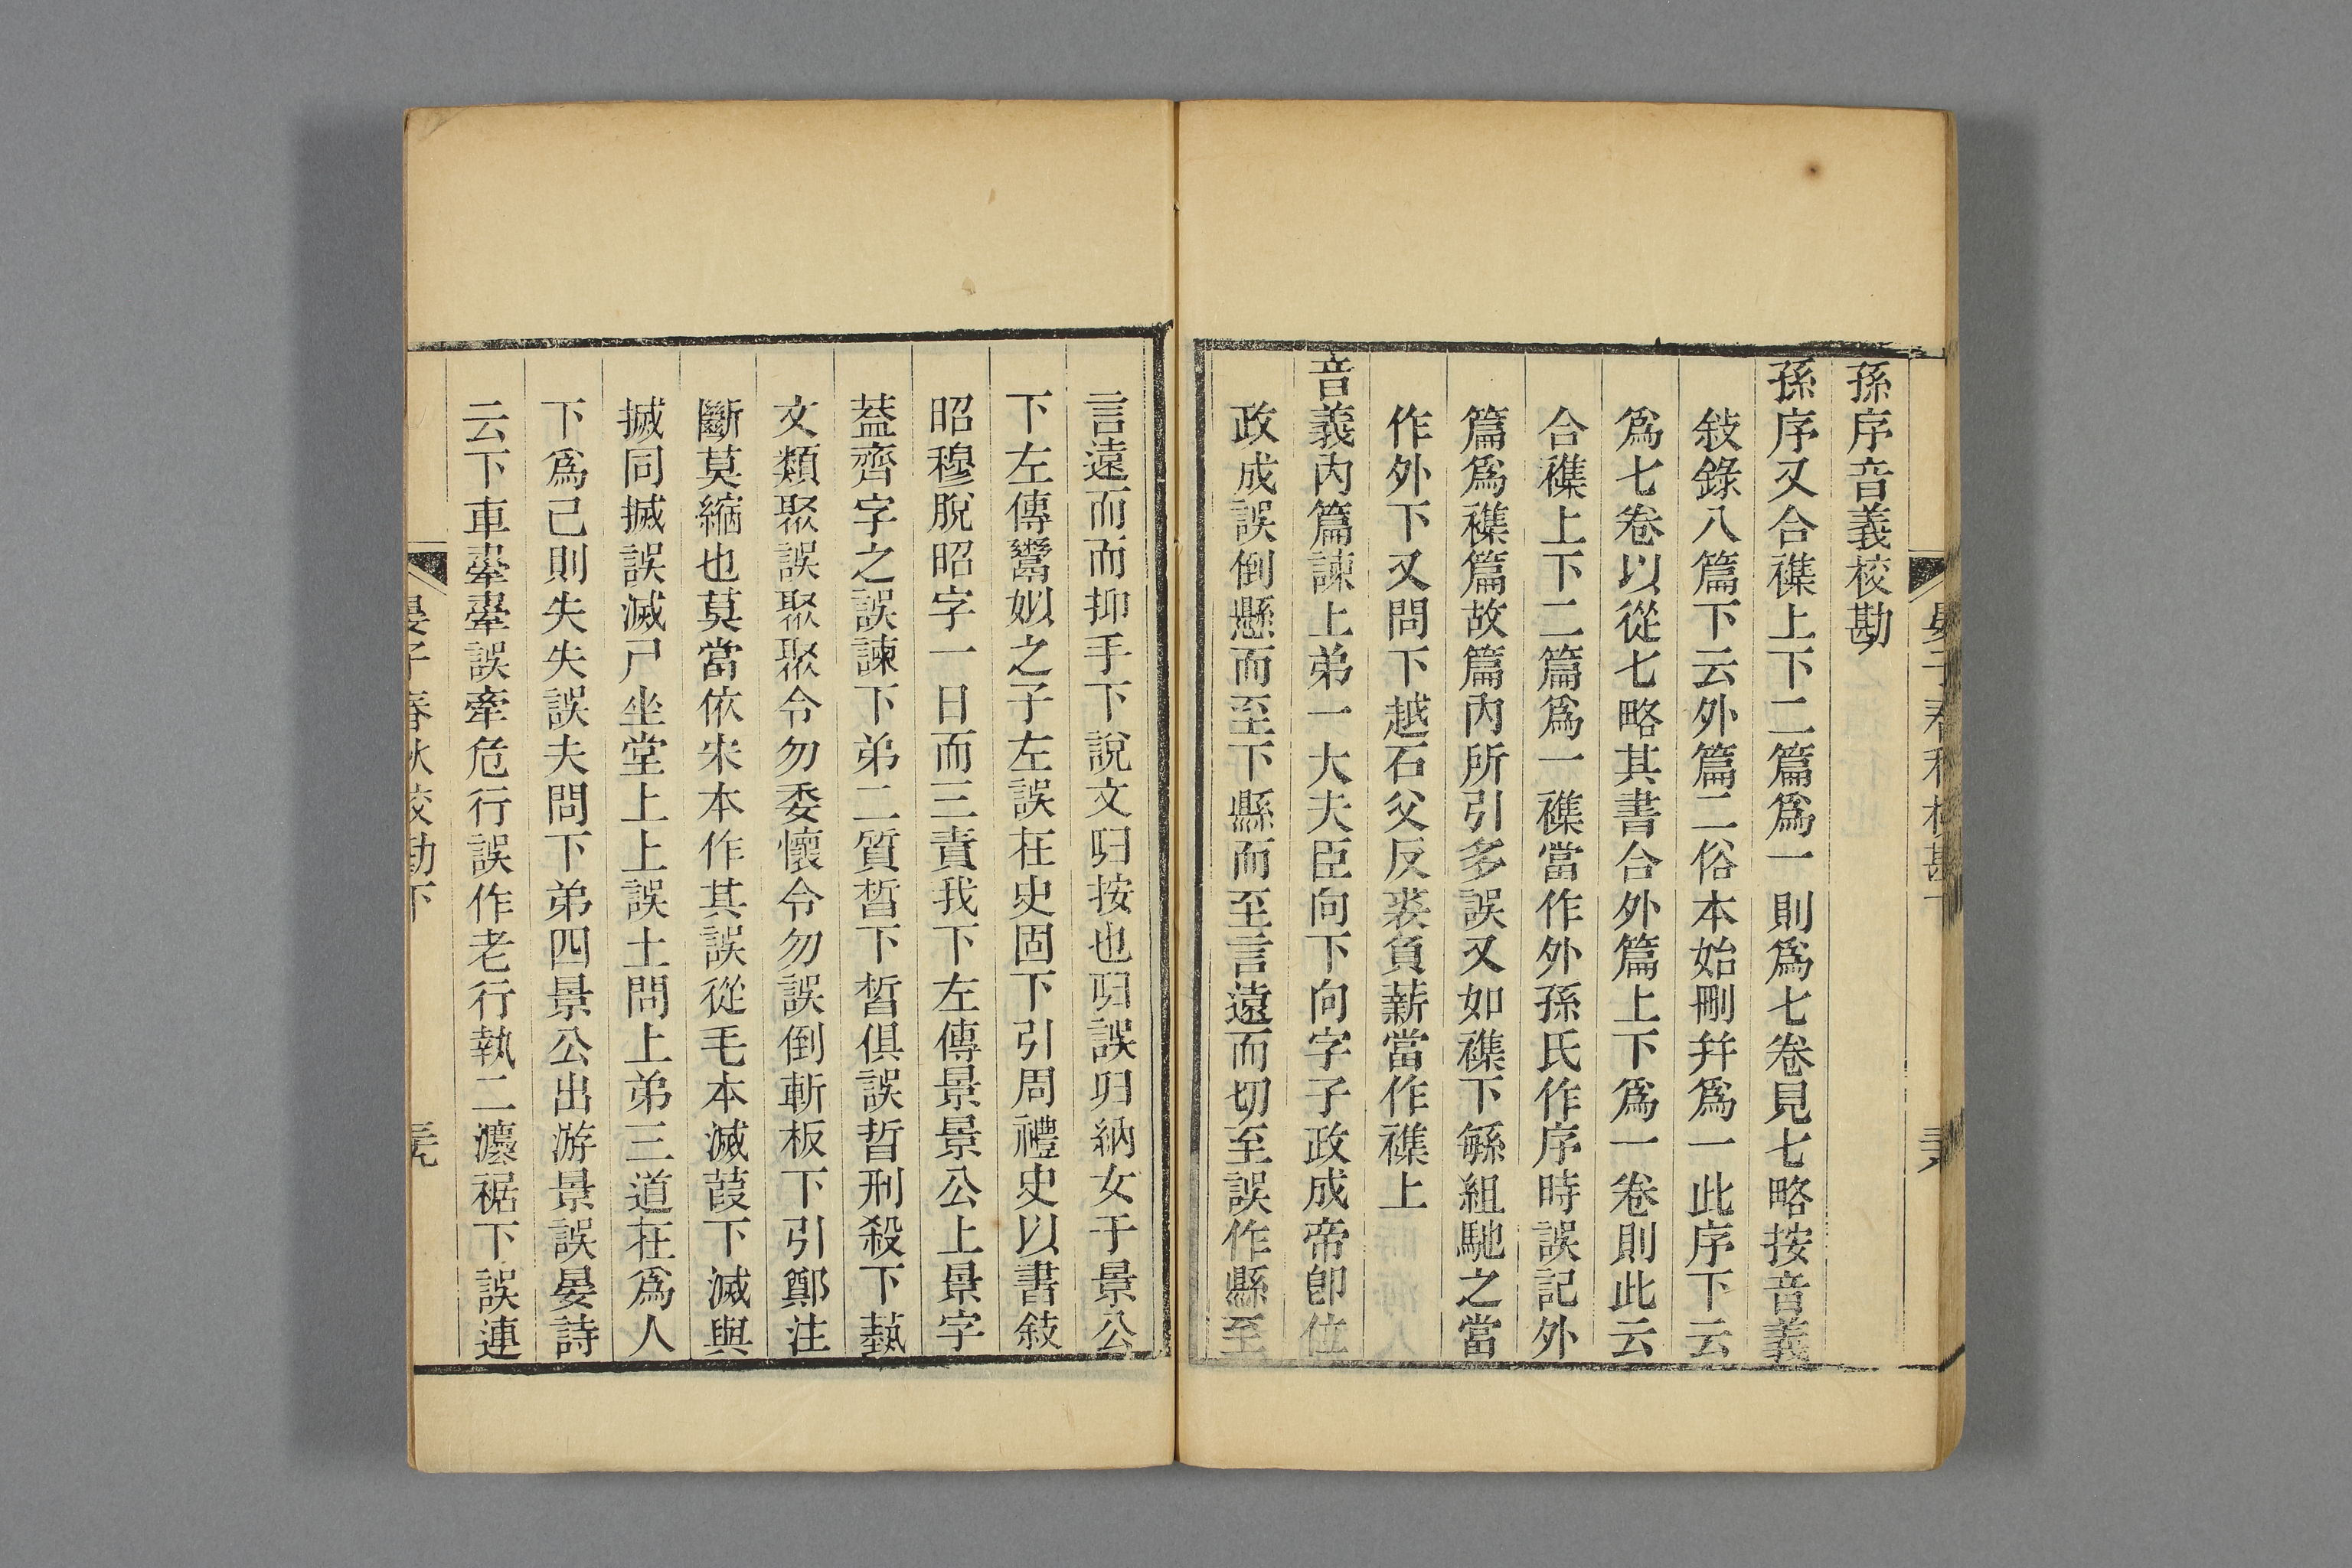 孫序音義校勘
孫序又合襍上下二篇爲一則爲七卷見七略按音義
敍錄八篇下云外篇二俗本始刪并爲一此序下云
爲七卷以從七略其書合外篇上下爲一卷則此云
合襍上下二篇爲一襍當作外孫氏作序時誤記外
篇爲襍篇故篇內所引多誤又如襍下緜組馳之當
作外下又問下越石父反裘負薪當作襍上
音義內篇諫上弟一大夫臣向下向字子政成帝卽位
政成誤倒懸而至下縣而至言遠而切至誤作縣至
言遠而而抑手下說文归按也归誤归納女于景公
下左傳鬻姒之子左誤在史固下引周禮史以書敍
昭穆脫昭字一日而三責我下左傳景景公上景字
葢齊字之誤諫下弟二質晳下晳俱誤哲刑殺下蓺
文類聚誤聚聚令勿委懷令勿誤倒斬板下引鄭注
斷莫縮也莫當依宋本作其誤從毛本滅葭下滅與
搣同搣誤滅尸坐堂上上誤土問上弟三道在爲人
下爲己則失失誤夫問下弟四景公出游景誤晏詩
云下車舝舝誤牽危行誤作老行執二灋裾下誤連
晏子春秋校勘下